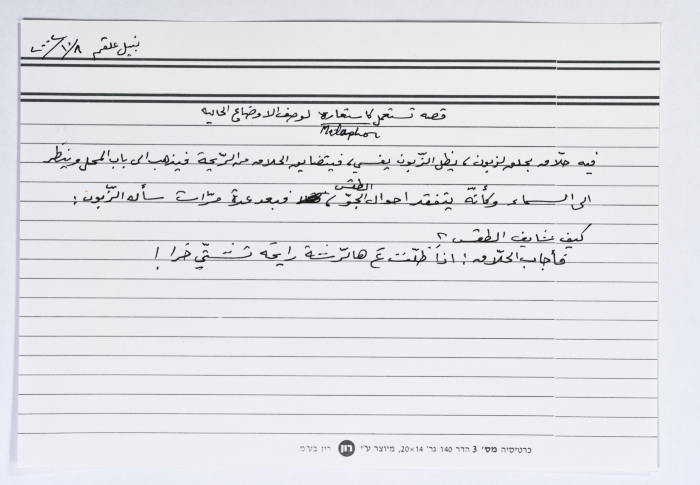 نبيل علقم ٨/١٠/٢٠٠٢
قصه تستعمل كاستعاره لوصف الاوضاع الحاليه
Metaphor
فيه حلّاق بحلق لزبون، يظل الزّبون يفسي، فيتضايق الحلاق من الرّيحة فيذهب الى باب المحل وينظر
الى السماء وكأنّه يتفقد احوال الجوّ، الطقس فبعد عدة مرّات سأله الزّبون:
كيف شايف الطقس؟
فأجاب الحلّاق: اذا ظلّت ع هالرّشّة رايحة تشتّي خرا!
כרטיסיה מס' 3 הדר 140 גר' 20×14, מיוצר ע"י רון רון בע"מ